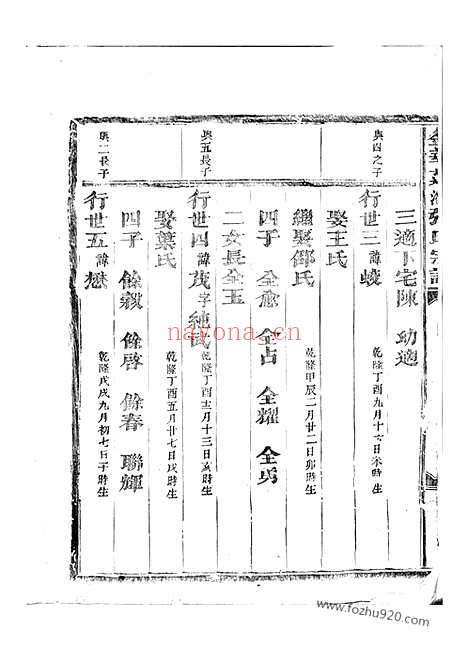 金華
張氏宗譜
三適下宅陳 幼適
興四之子
行世三 諱峻 乾隆丁酉九月十七日未時生
娶王氏
繼娶邵氏 乾隆甲辰二月廿二日卯時生
四子 全愈 全占 全耀 全勇
二女長全玉
興五長子
行世四 諱茂 字純武 乾隆丁酉五月十三日亥時生
娶葉氏 乾隆丁酉五月廿七日戌時生
四子 餘毅 餘啓 餘春 聯輝
興二長子
行世五 諱懋 乾隆戊戌九月初七日子時生
nayona.cn
www.fozhu920.com